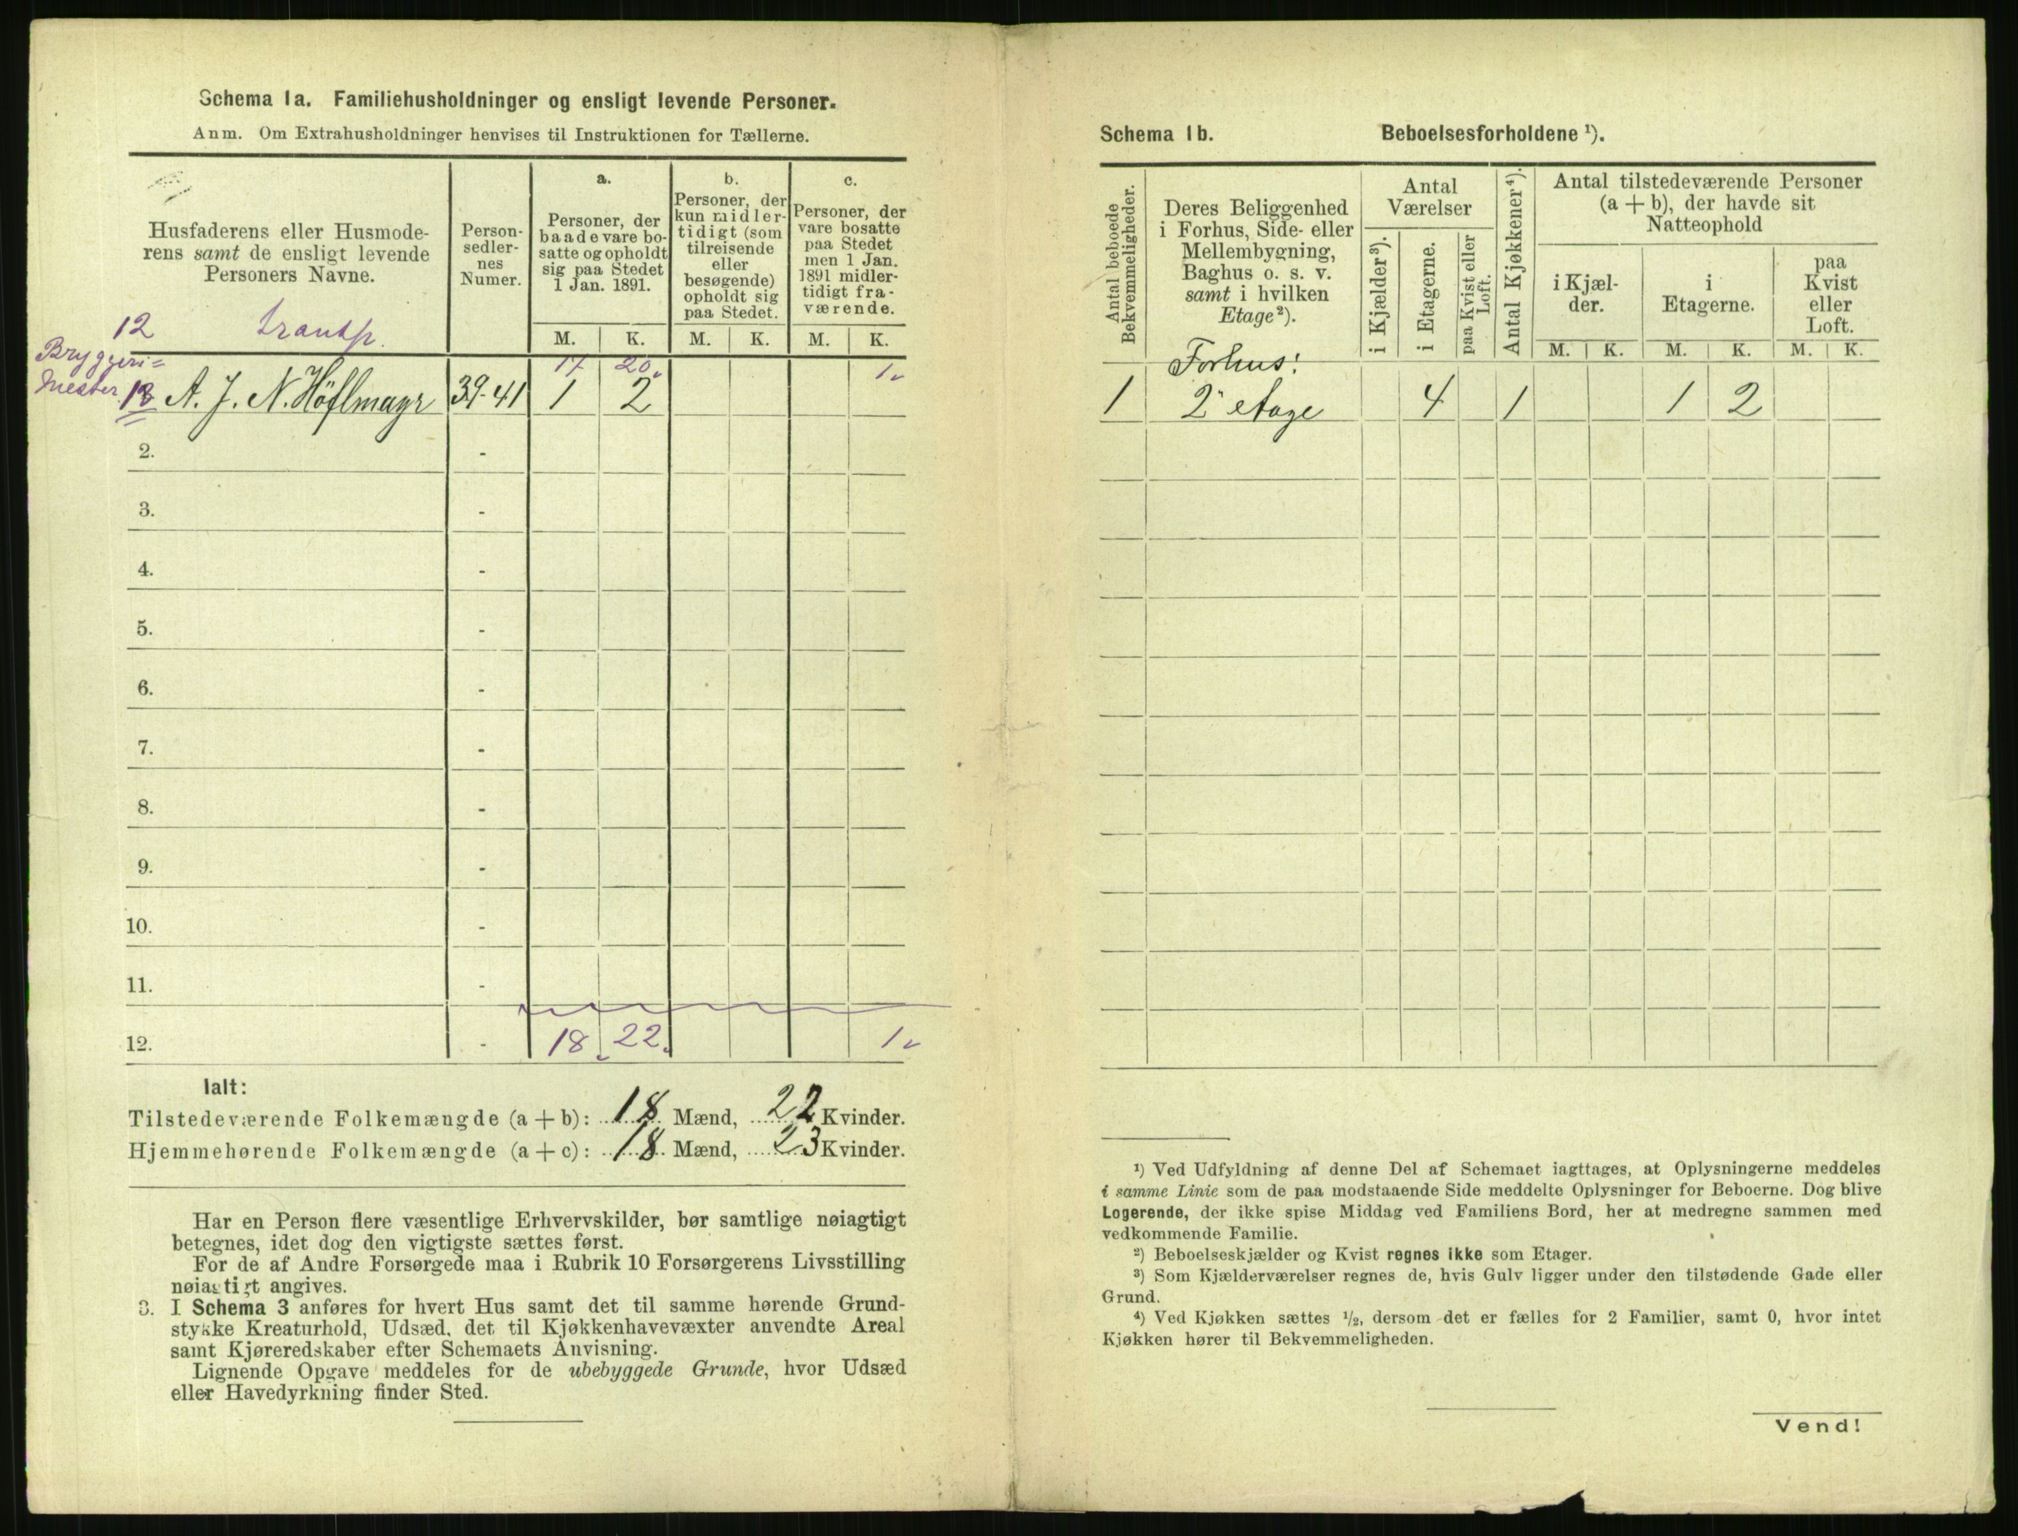 Schema 1a. Familiehusholdninger og ensligt levende Personer.
Anm. Om Extrahusholdninger henvises til Instruktionen for Tællerne.
Husfaderens eller Husmode-
rens samt de ensligt levende
Personers Navne.
Person-
sedler-
nes
Numer.
a.
Personer, der
baade vare bo-
satte og opholdt
sig paa Stedet
1 Jan. 1891.
b.
Personer, der
kun midler-
tidigt (som
tilreisende
eller
besøgende)
opholdt sig
paa Stedet.
c.
Personer, der
vare bosatte
paa Stedet
men 1 Jan.
1891 midler-
tidigt fra-
værende.
M. K. M. K. M. K.
12 transp. 17 20 1
Bryggeri=
mester 13 A. J. N. Höflmayr 39-41 1 2
2. -
3. -
4. -
5. -
6. -
7. -
8. -
9. -
10. -
11. -
12. - 18 22 1
Ialt:
Tilstedeværende Folkemængde (a + b): 18 Mænd, 22 Kvinder.
Hjemmehørende Folkemængde (a + c): 18 Mænd, 23 Kvinder.
Har en Person flere væsentlige Erhvervskilder, bør samtlige nøiagtigt
betegnes, idet dog den vigtigste sættes først.
For de af Andre Forsørgede maa i Rubrik 10 Forsørgerens Livsstilling
nøiagtigt angives.
3. I Schema 3 anføres for hvert Hus samt det til samme hørende Grund-
stykke Kreaturhold, Udsæd, det til Kjøkkenhavevæxter anvendte Areal
samt Kjøreredskaber efter Schemaets Anvisning.
Lignende Opgave meddeles for de ubebyggede Grunde, hvor Udsæd
eller Havedyrkning finder Sted.
Schema 1b. Beboelsesforholdene ¹).
Antal beboede
Bekvemmeligheder.
Deres Beliggenhed
i Forhus, Side- eller
Mellembygning,
Baghus o. s. v.
samt i hvilken
Etage ²).
Antal
Værelser
i Kjælder ³).
i Etagerne.
paa Kvist eller
Loft.
Antal Kjøkkener ⁴).
Antal tilstedeværende Personer
(a + b), der havde sit
Natteophold
i Kjæl-
der.
i
Etagerne.
paa
Kvist
eller
Loft.
M. K. M. K. M. K.
Forhus:
1 2 etage 4 1 1 2
¹) Ved Udfyldning af denne Del af Schemaet iagttages, at Oplysningerne meddeles
i samme Linie som de paa modstaaende Side meddelte Oplysninger for Beboerne. Dog blive
Logerende, der ikke spise Middag ved Familiens Bord, her at medregne sammen med
vedkommende Familie.
²) Beboelseskjælder og Kvist regnes ikke som Etager.
³) Som Kjælderværelser regnes de, hvis Gulv ligger under den tilstødende Gade eller
Grund.
⁴) Ved Kjøkken sættes ½, dersom det er fælles for 2 Familier, samt 0, hvor intet
Kjøkken hører til Bekvemmeligheden.
Vend!